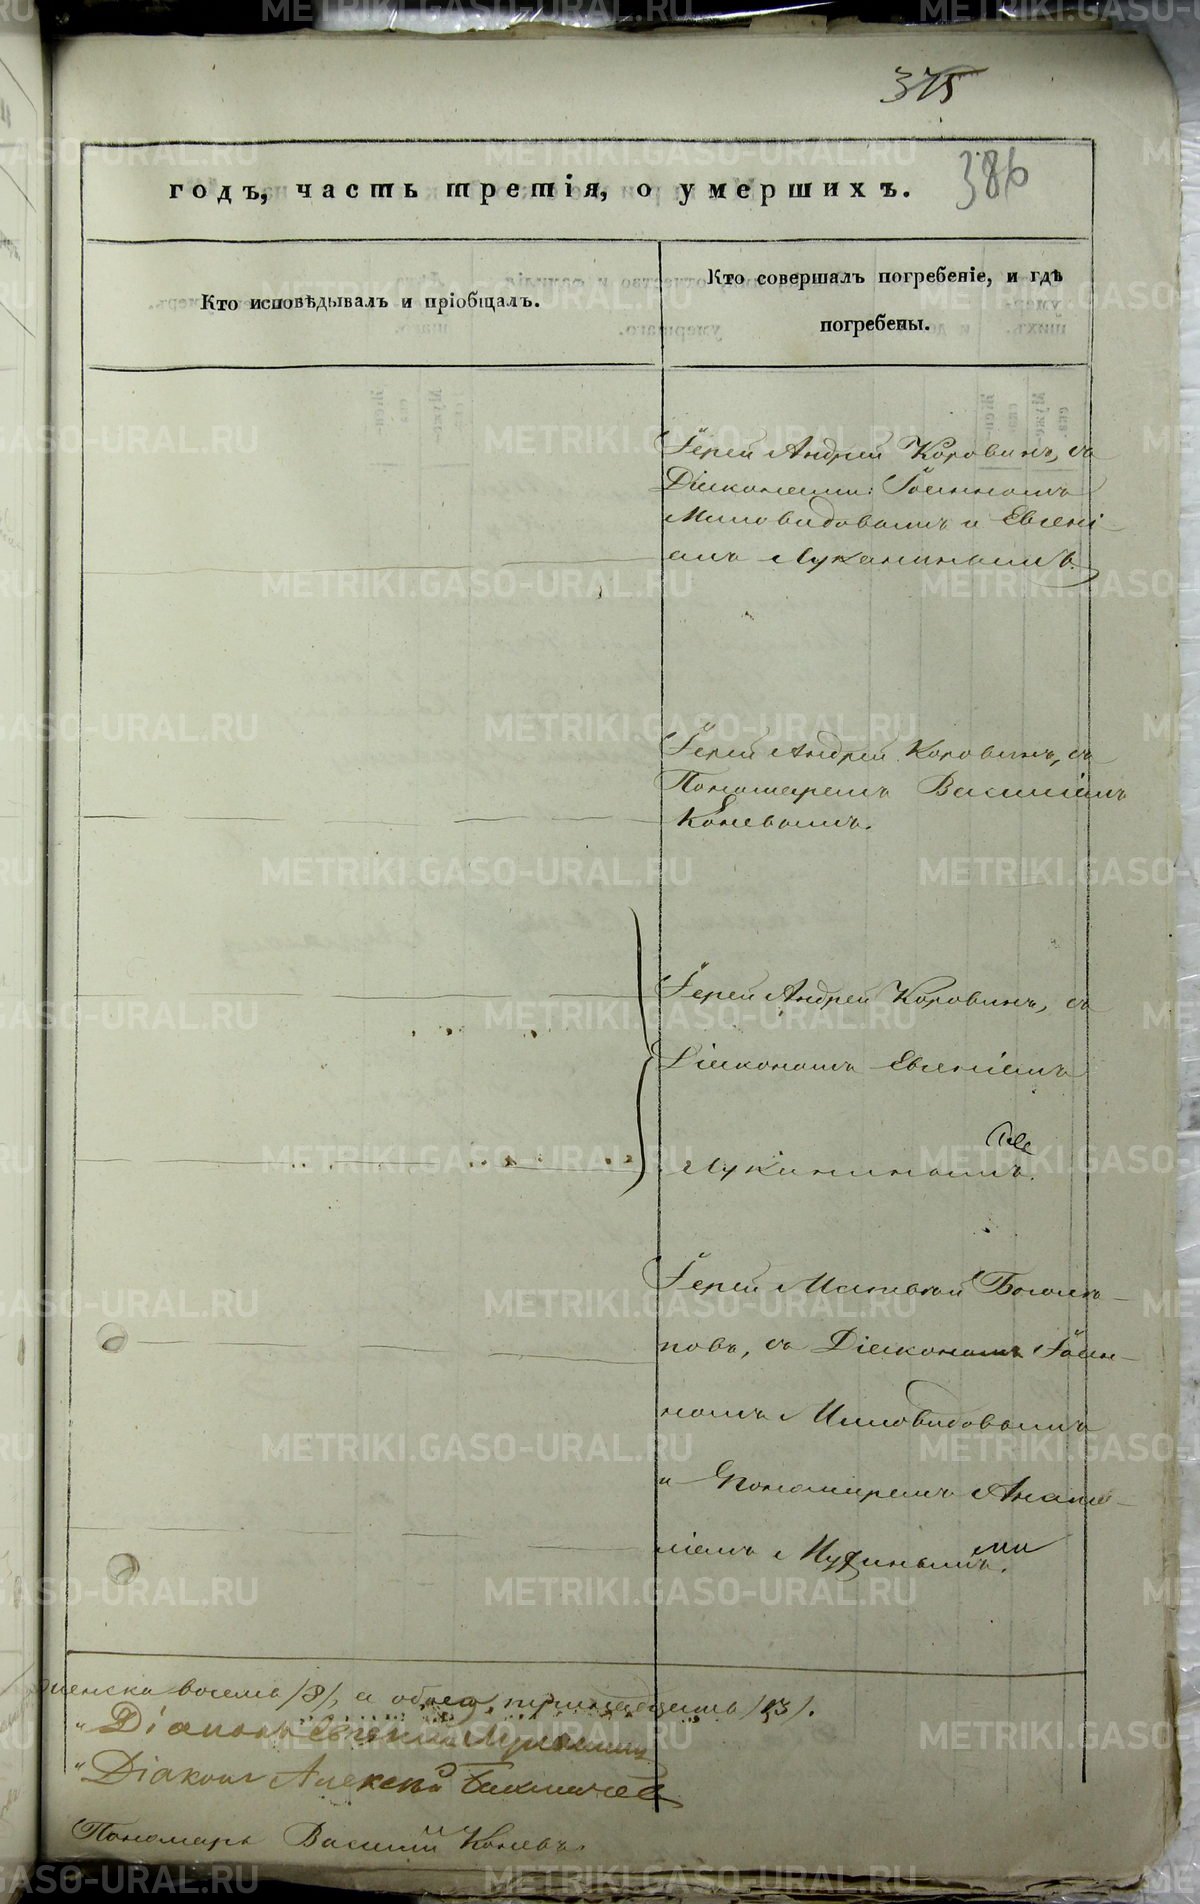 375
386
годъ, часть третія, о умершихъ.
Кто исповѣдывалъ и пріобщалъ.
Кто совершалъ погребеніе, и гдѣ
погребены.
Іерей Андрей Коровинъ, съ
Діаконами: Іоанномъ
Миловидовымъ и Евгені-
емъ Луканинымъ.
Іерей Андрей Коровинъ, съ
Пономаремъ Василіемъ
Коневымъ.
Іерей Андрей Коровинъ, съ
Діакономъ Евгеніемъ
Луканинымъ.
Іерей Матвѣй
повъ, съ Діакономъ Іоан-
номъ Миловидовымъ
и Пономаремъ
ліемъ
женска восемь /8/, а обоего тринадцать /13/.
Діаконъ Евгеній Луканинъ
Діаконъ Алексѣй
Пономарь Василій Коневъ.
METRIKI.GASO-URAL.RU